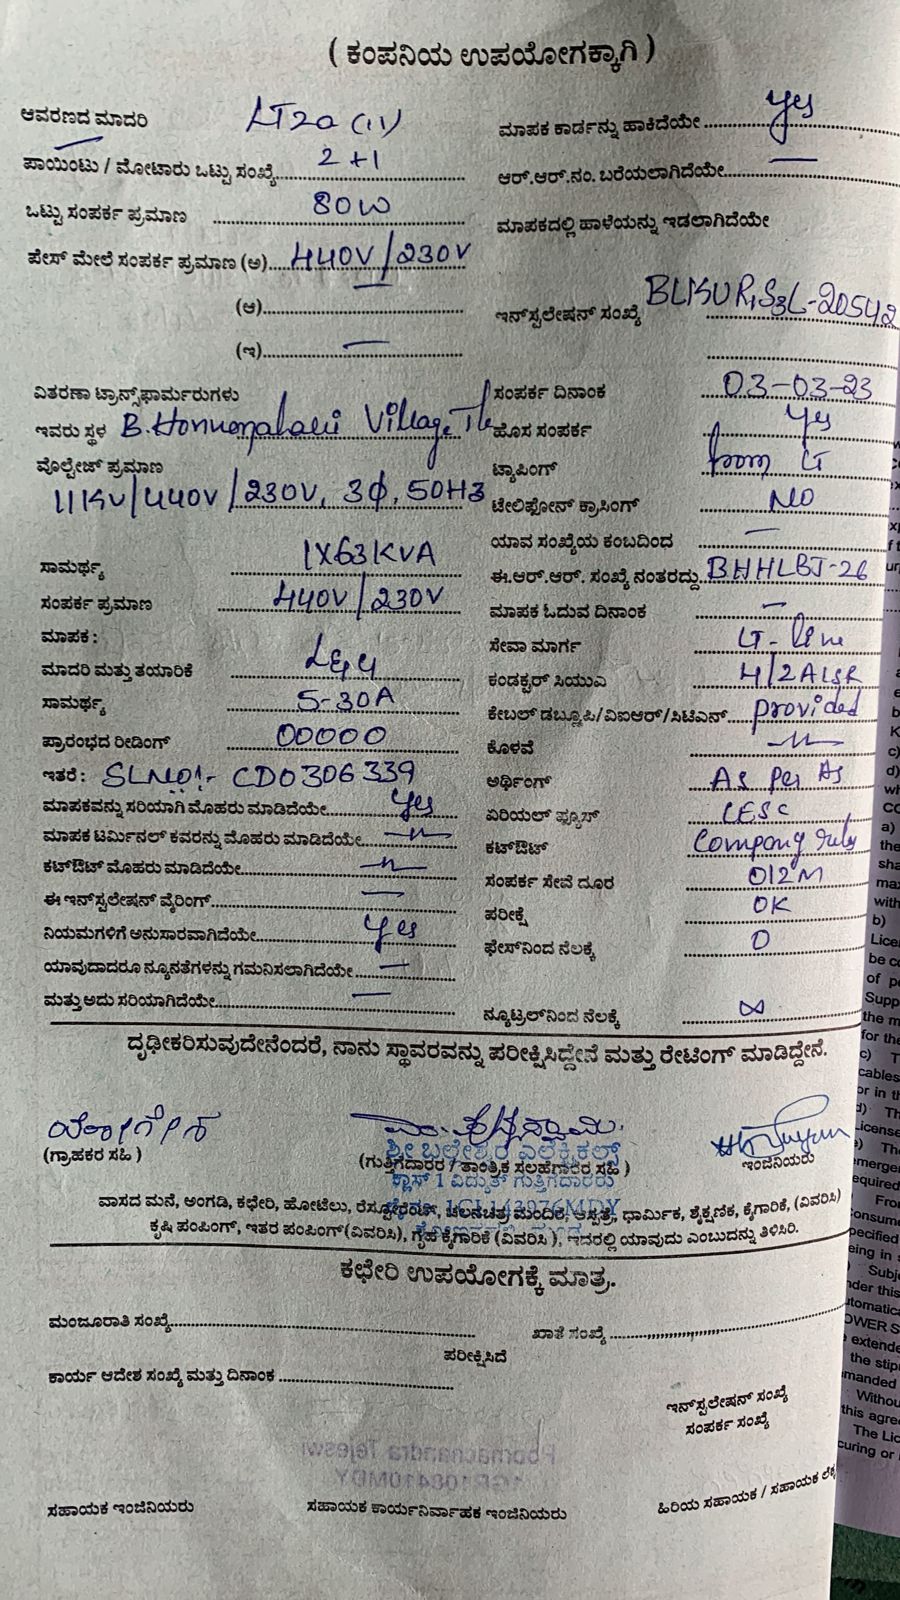 ( ಕಂಪನಿಯ ಉಪಯೋಗಕ್ಕಾಗಿ )
ಆವರಣದ ಮಾದರಿ LT2a (ii)
ಪಾಯಿಂಟು / ಮೋಟಾರು ಒಟ್ಟು ಸಂಖ್ಯೆ 2+1
ಒಟ್ಟು ಸಂಪರ್ಕ ಪ್ರಮಾಣ 80W
ಪೇಸ್ ಮೇಲೆ ಸಂಪರ್ಕ ಪ್ರಮಾಣ (ಅ) 440V/230V
(ಆ)
(ಇ) —
ವಿತರಣಾ ಟ್ರಾನ್ಸ್‌ಫಾರ್ಮರುಗಳು
ಇವರು ಸ್ಥಳ B. Village
ವೊಲ್ಟೇಜ್ ಪ್ರಮಾಣ
11KV/440V/230V, 3Φ, 50HZ
ಸಾಮರ್ಥ್ಯ 1X63KVA
ಸಂಪರ್ಕ ಪ್ರಮಾಣ 440V/230V
ಮಾಪಕ :
ಮಾದರಿ ಮತ್ತು ತಯಾರಿಕೆ
ಸಾಮರ್ಥ್ಯ 5-30A
ಪ್ರಾರಂಭದ ರೀಡಿಂಗ್ 00000
ಇತರೆ : SLNO:- CD0306339
ಮಾಪಕವನ್ನು ಸರಿಯಾಗಿ ಮೊಹರು ಮಾಡಿದೆಯೇ yes
ಮಾಪಕ ಟರ್ಮಿನಲ್ ಕವರನ್ನು ಮೊಹರು ಮಾಡಿದೆಯೇ
ಕಟ್‌ಔಟ್ ಮೊಹರು ಮಾಡಿದೆಯೇ
ಈ ಇನ್‌ಸ್ಟಲೇಷನ್ ವೈರಿಂಗ್ —
ನಿಯಮಗಳಿಗೆ ಅನುಸಾರವಾಗಿದೆಯೇ yes
ಯಾವುದಾದರೂ ನ್ಯೂನತೆಗಳನ್ನು ಗಮನಿಸಲಾಗಿದೆಯೇ —
ಮತ್ತು ಅದು ಸರಿಯಾಗಿದೆಯೇ —
ಮಾಪಕ ಕಾರ್ಡನ್ನು ಹಾಕಿದೆಯೇ yes
ಆರ್.ಆರ್.ನಂ. ಬರೆಯಲಾಗಿದೆಯೇ —
ಮಾಪಕದಲ್ಲಿ ಹಾಳೆಯನ್ನು ಇಡಲಾಗಿದೆಯೇ
ಇನ್‌ಸ್ಟಲೇಷನ್ ಸಂಖ್ಯೆ
ಸಂಪರ್ಕ ದಿನಾಂಕ 03-03-23
ಹೊಸ ಸಂಪರ್ಕ yes
ಟ್ಯಾಪಿಂಗ್ from LT
ಟೇಲಿಫೋನ್ ಕ್ರಾಸಿಂಗ್ NO
ಯಾವ ಸಂಖ್ಯೆಯ ಕಂಬದಿಂದ —
ಈ.ಆರ್.ಆರ್. ಸಂಖ್ಯೆ ನಂತರದ್ದು BHHLBJ-26
ಮಾಪಕ ಓದುವ ದಿನಾಂಕ —
ಸೇವಾ ಮಾರ್ಗ LT-line
ಕಂಡಕ್ಟರ್ ಸಿಯುವಿ
ಕೇಬಲ್ ಡಬ್ಲೂಪಿ/ವಿಐಆರ್/ಸಿಟಿಎನ್ provided
ಕೊಳವೆ
ಅರ್ಥಿಂಗ್ As per As
ಏರಿಯಲ್ ಫ್ಯೂಸ್ CESC
ಕಟ್‌ಔಟ್ Company
ಸಂಪರ್ಕ ಸೇವೆ ದೂರ 012M
ಪರೀಕ್ಷೆ OK
ಫೇಸ್‌ನಿಂದ ನೆಲಕ್ಕೆ 0
ನ್ಯೂಟ್ರಲ್‌ನಿಂದ ನೆಲಕ್ಕೆ ∞
ದೃಢೀಕರಿಸುವುದೇನೆಂದರೆ, ನಾನು ಸ್ಥಾವರವನ್ನು ಪರೀಕ್ಷಿಸಿದ್ದೇನೆ ಮತ್ತು ರೇಟಿಂಗ್ ಮಾಡಿದ್ದೇನೆ.
(ಗ್ರಾಹಕರ ಸಹಿ )
(ಗುತ್ತಿಗೆದಾರರ / ತಾಂತ್ರಿಕ ಸಲಹೆಗಾರರ ಸಹಿ )
ಇಂಜಿನಿಯರು
ವಾಸದ ಮನೆ, ಅಂಗಡಿ, ಕಛೇರಿ, ಹೋಟೆಲು, ರೆಸ್ಟೋರೆಂಟ್, ಚಲನಚಿತ್ರ ಮಂದಿರ, ಆಸ್ಪತ್ರೆ, ಧಾರ್ಮಿಕ, ಶೈಕ್ಷಣಿಕ, ಕೈಗಾರಿಕೆ, (ವಿವರಿಸಿ)
ಕೃಷಿ ಪಂಪಿಂಗ್, ಇತರ ಪಂಪಿಂಗ್(ವಿವರಿಸಿ), ಗೃಹ ಕೈಗಾರಿಕೆ (ವಿವರಿಸಿ ), ಇದರಲ್ಲಿ ಯಾವುದು ಎಂಬುದನ್ನು ತಿಳಿಸಿರಿ.
ಕಛೇರಿ ಉಪಯೋಗಕ್ಕೆ ಮಾತ್ರ.
ಮಂಜೂರಾತಿ ಸಂಖ್ಯೆ
ಖಾತೆ ಸಂಖ್ಯೆ
ಪರೀಕ್ಷಿಸಿದೆ
ಕಾರ್ಯ ಆದೇಶ ಸಂಖ್ಯೆ ಮತ್ತು ದಿನಾಂಕ
ಇನ್‌ಸ್ಟಲೇಷನ್ ಸಂಖ್ಯೆ
ಸಂಪರ್ಕ ಸಂಖ್ಯೆ
ಸಹಾಯಕ ಇಂಜಿನಿಯರು
ಸಹಾಯಕ ಕಾರ್ಯನಿರ್ವಾಹಕ ಇಂಜಿನಿಯರು
ಹಿರಿಯ ಸಹಾಯಕ / ಸಹಾಯಕ